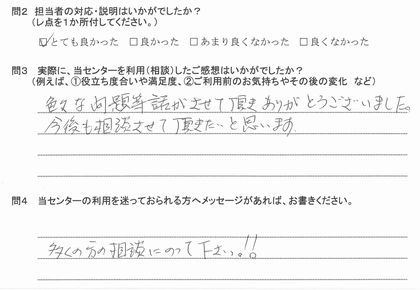 問2 担当者の対応・説明はいかがでしたか?
(レ点を1か所付してください。)
☑とても良かった □良かった □あまり良くなかった □良くなかった
問3 実際に、当センターを利用(相談)したご感想はいかがでしたか?
(例えば、①役立ち度合いや満足度、②ご利用前のお気持ちやその後の変化 など)
色々な問題等話がさせて頂きありがとうございました。
今後も相談させて頂きたいと思います。
問4 当センターの利用を迷っておられる方へメッセージがあれば、お書きください。
多くの方の相談にのって下さい。!!